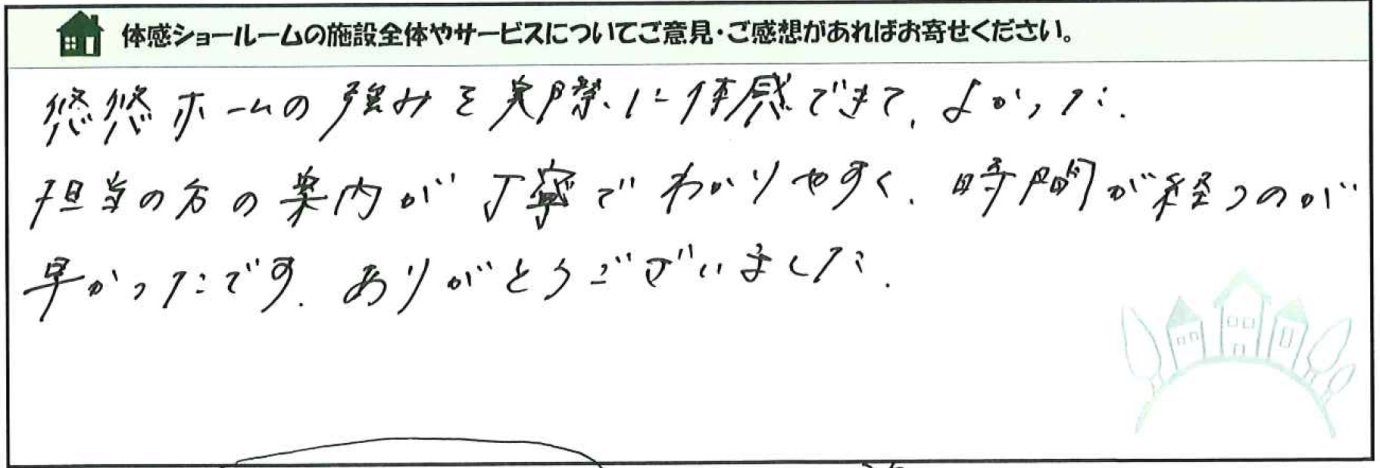 体感ショールームの施設全体やサービスについてご意見・ご感想があればお寄せください。
悠悠ホームの強みを実際に体感できて、よかった.
担当の方の案内が丁寧でわかりやすく、時間が経つのが
早かったです. ありがとうございました.